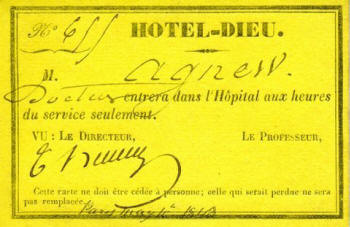 HOTEL-DIEU.
M. Agnew.
Docteur entrera dans l'Hôpital aux heures
du service seulement.
VU : LE DIRECTEUR, LE PROFESSEUR,
Cette carte ne doit être cédée à personne; celle qui serait perdue ne sera
pas remplacée.
Paris May